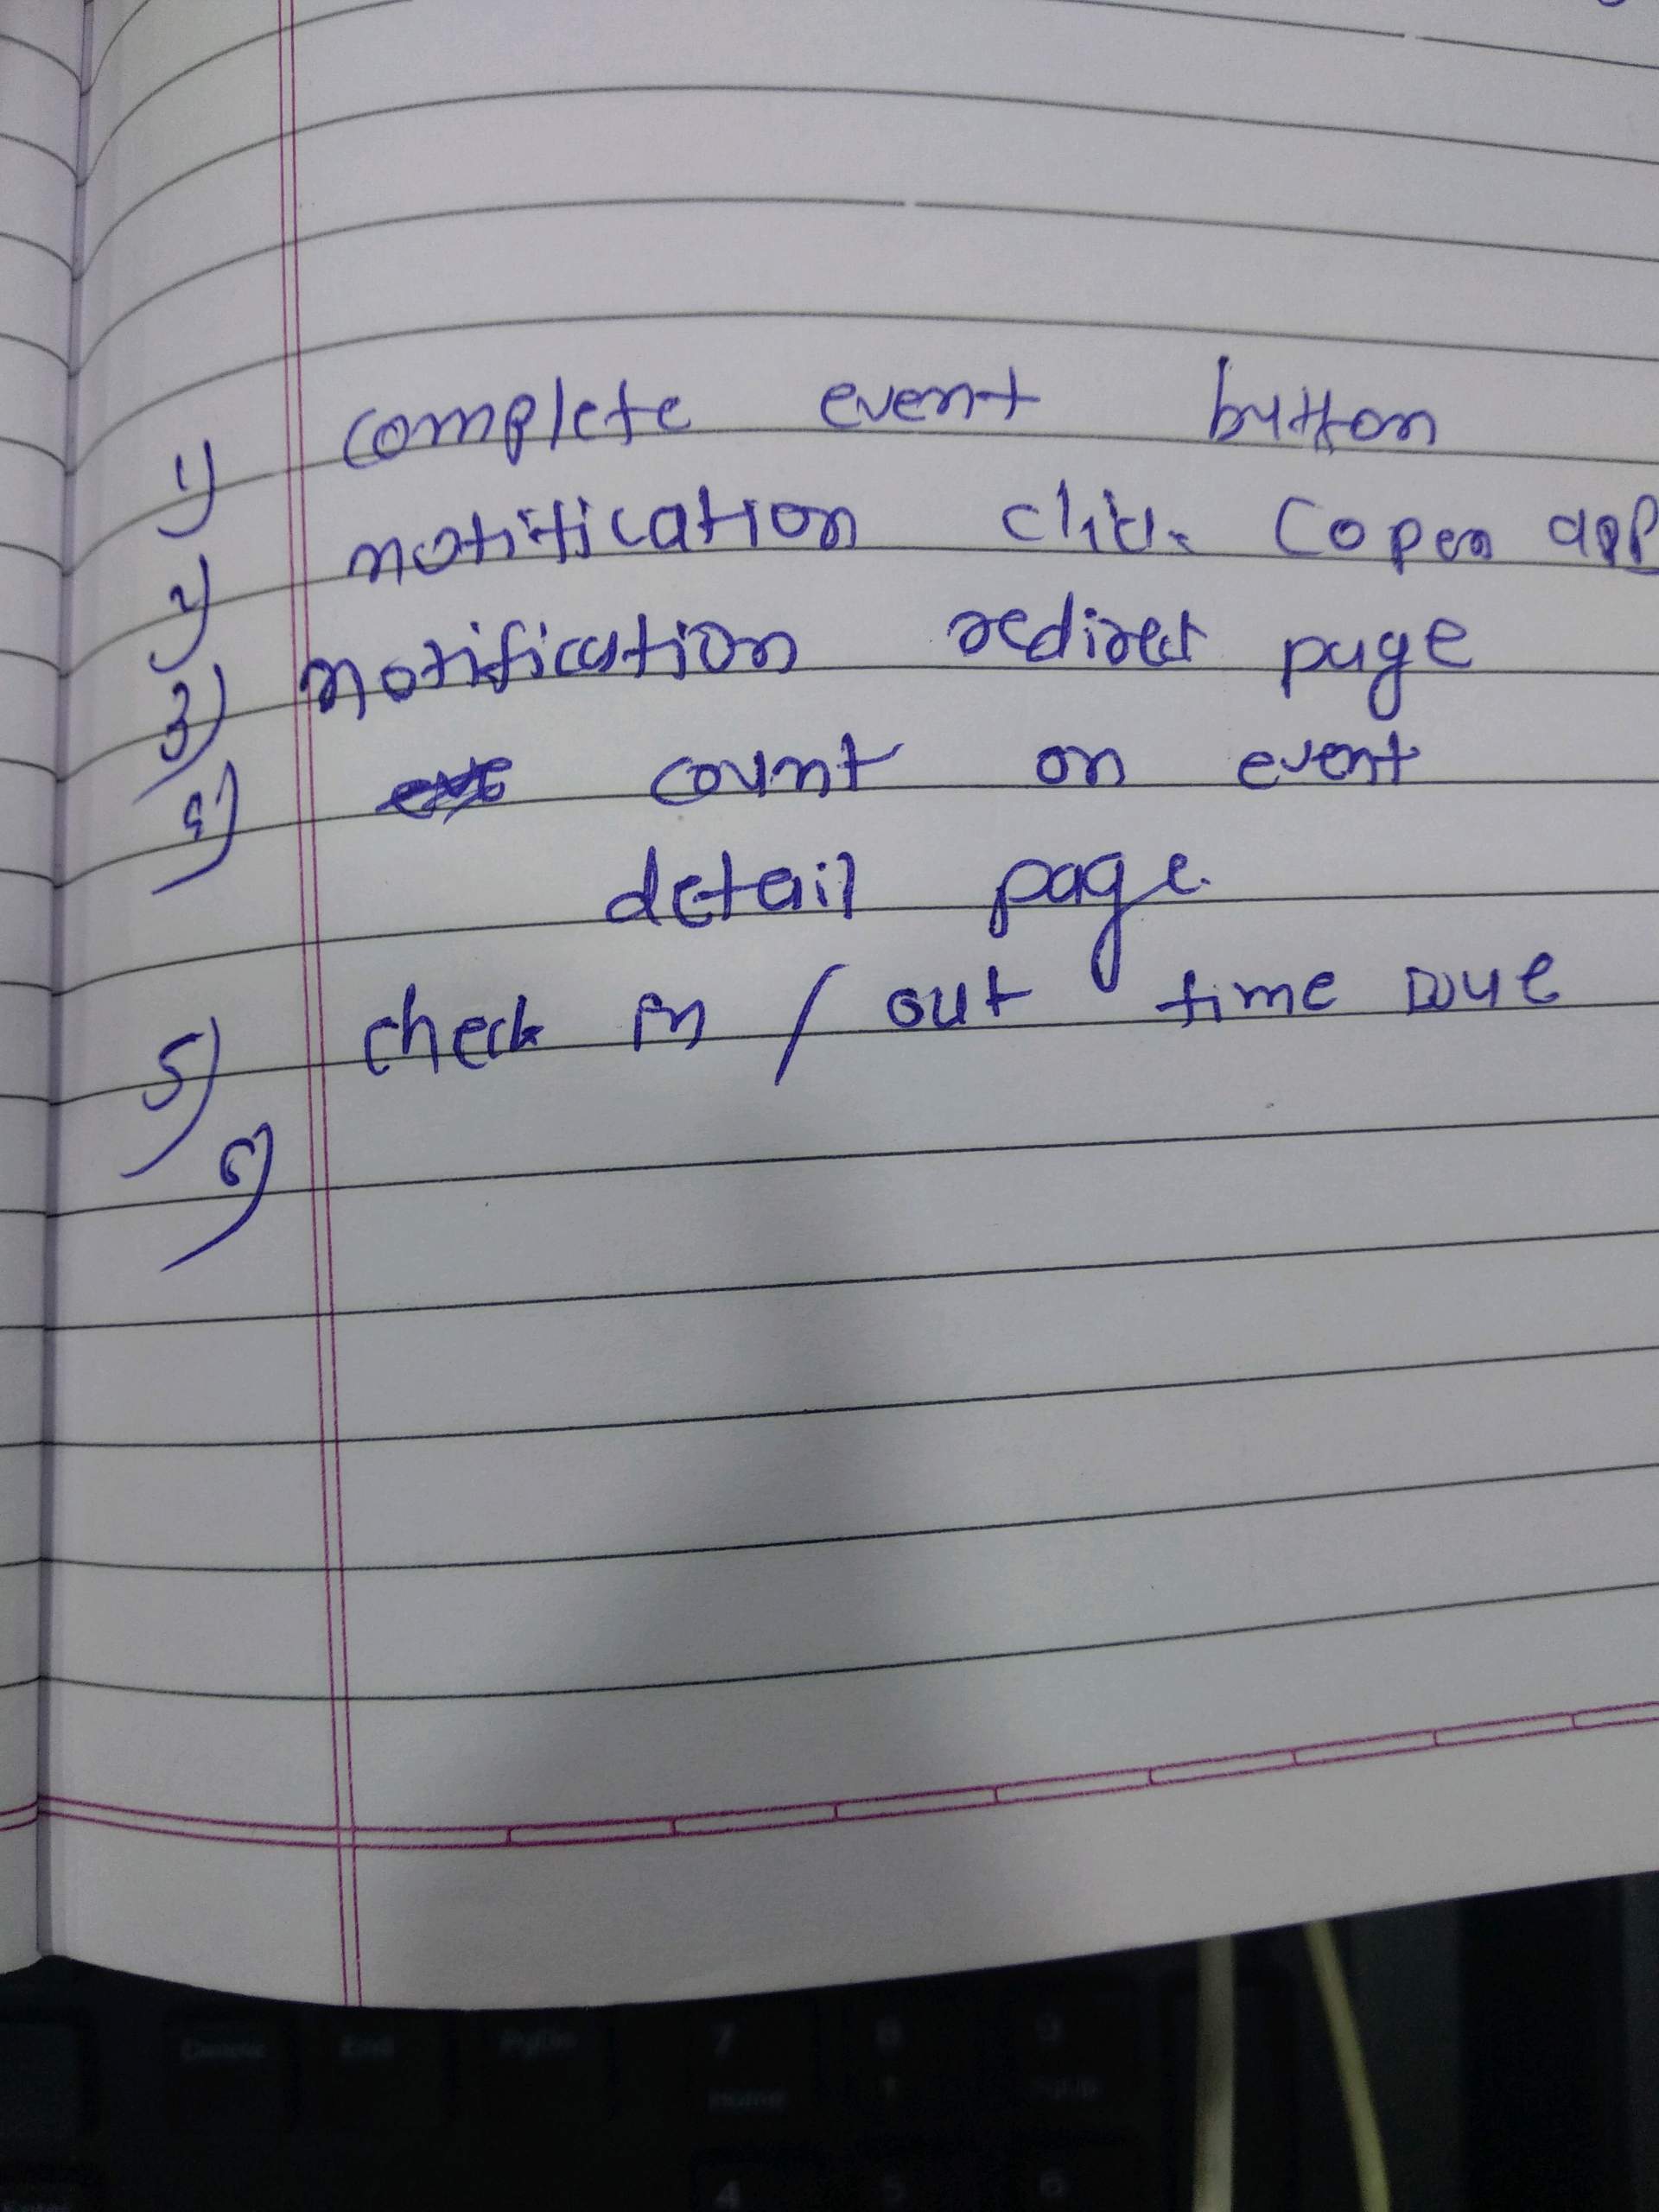 1) complete event button
2) notification click (open app
3) notification redirect page
4) count on event
detail page.
5) check in / out time
6)
7 8 9
Home
4 5 6